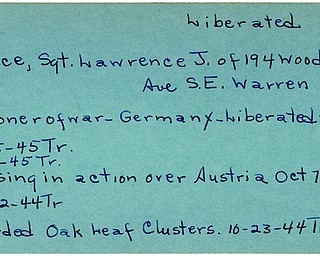 Liberated
ce, Sgt. Lawrence J. of 194 Wood
Ave S.E. Warren
oner of war - Germany - Liberated
-45 Tr.
-45 Tr.
sing in action over Austria Oct 7
2-44 Tr
ded Oak Leaf Clusters. 10-23-44 Tr